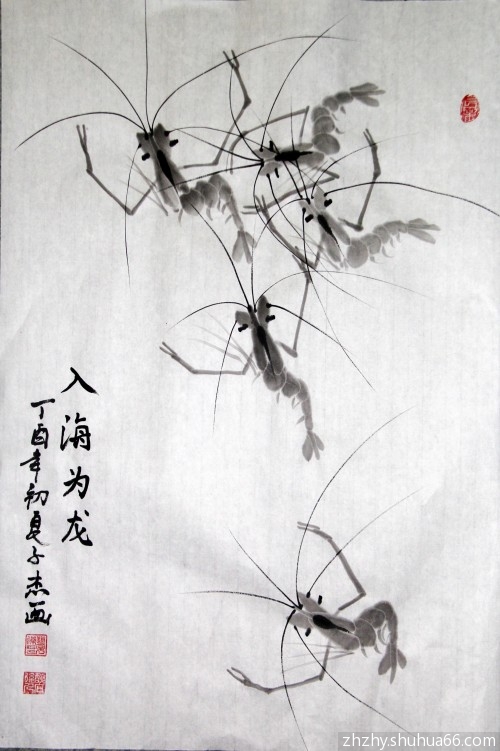 入海为龙
丁酉年初夏子杰画
zhzhy.shuhua66.com